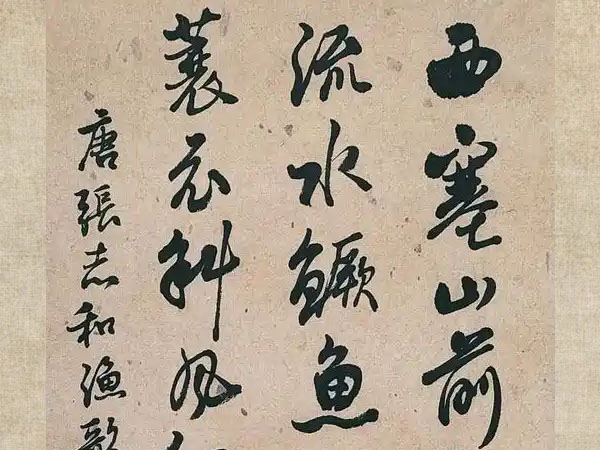 西塞山前
流水鳜魚
蓑衣斜風
唐張志和漁歌